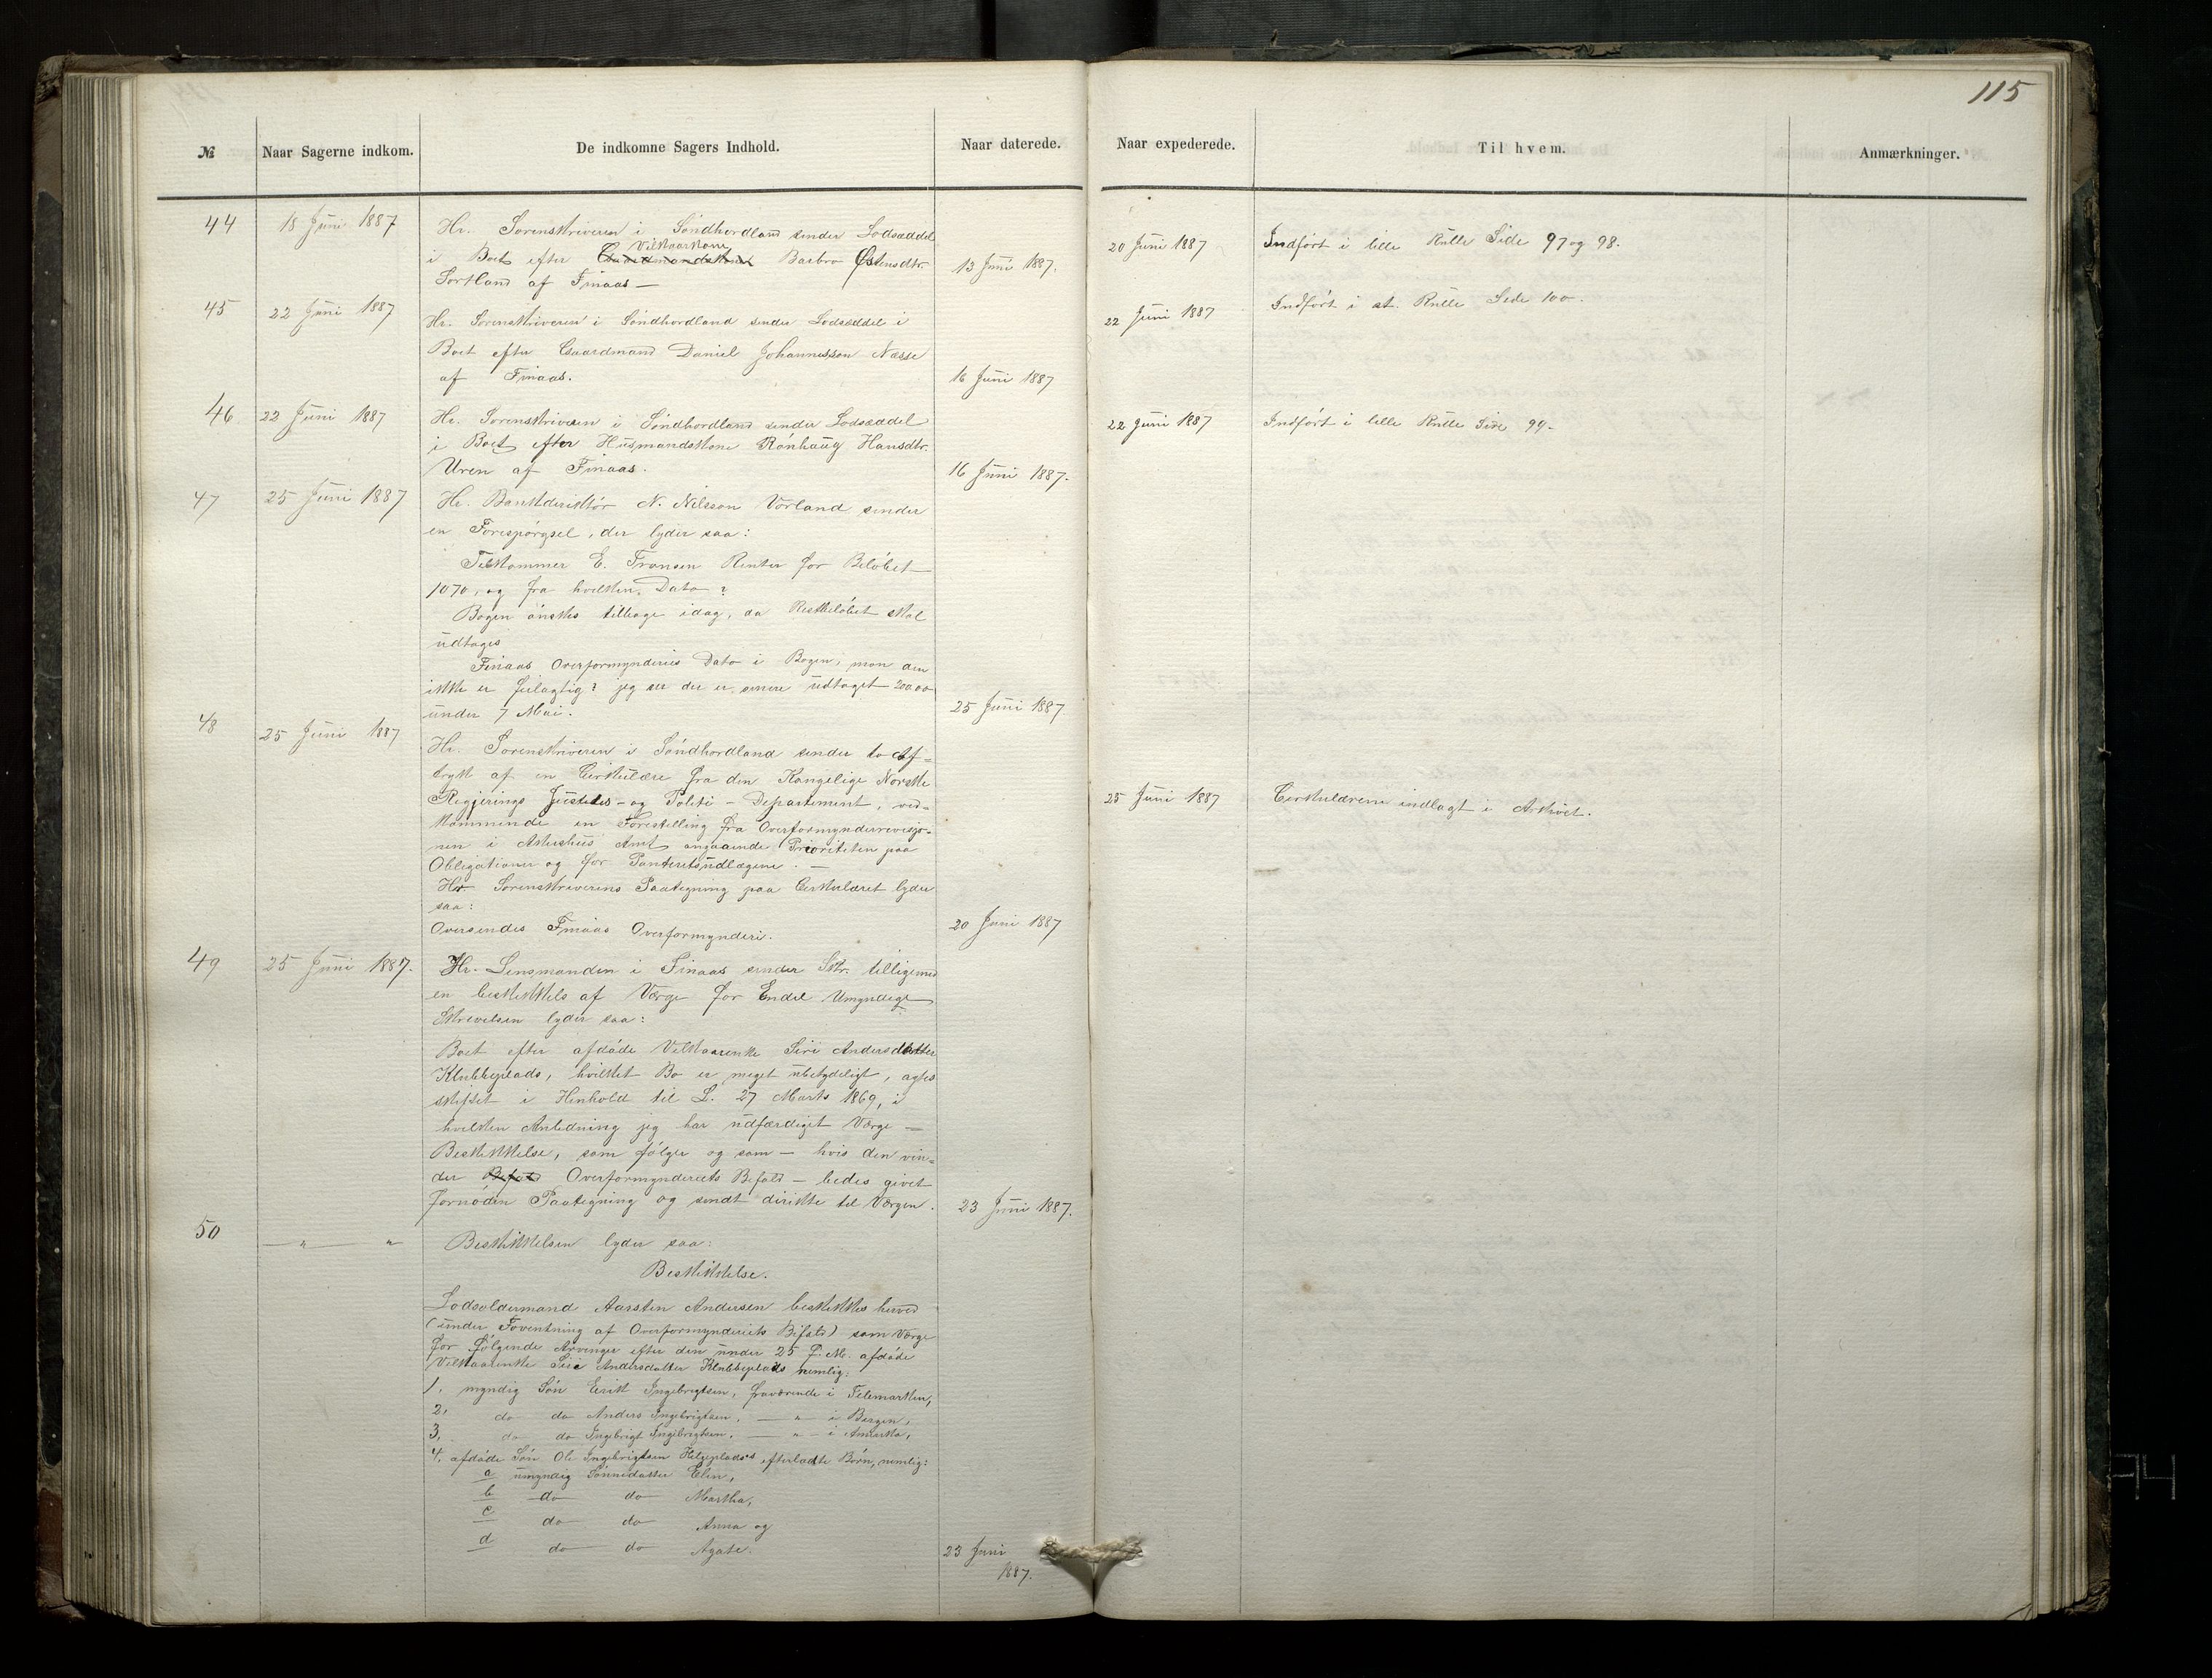 115
№ Naar Sagerne indkom. De indkomne Sagers Indhold. Naar daterede. Naar expederede. Til hvem. Anmærkninger.
44 18 Juni 1887 Hr. Sorenskriveren i Söndhordland sender Lodseddel
Vilkaarskone
i Boet efter Gaardmandskone Barbro Östensdtr. 13 Juni 1887. 20 Juni 1887 Indfört i lille Rulle Side 97 og 98.
Sortland af Finaas —
45 22 Juni 1887 Hr. Sorenskriveren i Söndhordland sender Lodseddel i 22 Juni 1887 Indfört i st. Rulle Side 100.
Boet efter Gaardmand Daniel Johannesson Næsse
af Finaas. 16 Juni 1887
46 22 Juni 1887 Hr. Sorenskriveren i Söndhordland sender Lodseddel 22 Juni 1887 Indfört i lille Rulle Side 99.
i Boet efter Husmandskone Rönhaug Hansdtr.
Uren af Finaas. 16 Juni 1887.
47 25 Juni 1887 Hr. Bankderiktör N. Nilsson Vorland sender
en Forespörgsel, der lyder saa:
Tilkommer E. Fransen Renter for Belöbet
1070, og fra hvilken Dato?
Bogen önskes tilbage idag, da Restbelöbet skal
udtages
Finaas Overformynderies Dato i Bogen, mon den
ikke er feilagtig? jeg ser der er senere udtaget 200,00
under 7 Mai. 25 Juni 1887
48 25 Juni 1887 Hr. Sorenskriveren i Söndhordland sender to Af=
tryk af en Cirkulære fra den Kongelige Norske
Regjerings Justits- og Politi-Departement, ved= 25 Juni 1887 Cirkulærene indlagt i Arkivet.
kommende en Forestilling fra Overformynderrevisjo=
nen i Akershus Amt angaaende Prioriteten paa
Obligationer og for Panteretsudlægene. —
Hr Sorenskriverens Paategning paa Cirkulæret lyder
saa:
Oversendes Finaas Overformynderi. 20 Juni 1887
49 25 Juni 1887. Hr. Lensmanden i Finaas sender Skr. tilligemed
en beskikkels af Værge for Endel Umyndige
Skrivelsen lyder saa:
Boet efter afdöde Vilkaarenke Siri Andersdatter
Klubbeplads, hvilket Bo er meget ubetydeligt, agtes
skiftet i Henhold til L. 27 Marts 1869, i
hvilken Anledning jeg har udfærdiget Værge —
Beskikkelse, som fölger og som — hvis den vin=
der Bifald Overformynderiets Bifald — bedes givet
fornöden Paategning og sendt direkte til Værgen. 23 Juni 1887.
50 — " " Beskikkelsen lyder saa:
Beskikkelse.
Lodsoldermand Aarsten Andersen beskikkes herved
(under Foventning af Overformynderiets Bifald) som Værge
for fölgende Arvinger efter den under 25 f. M. afdöde
Vilkaarenke Siri Andersdatter Klubbeplads nemlig:
1, myndig Sön Erik Ingebrigtsen, fraværende i Telemarken,
2, do do Anders Ingebrigtsen, — " — i Bergen,
3, do do Ingebrigt Ingebrigtsen, — " — i Amerika,
4, afdöde Sön Ole Ingebrigtsen Helgeplads's efterladte Börn, nemlig:
a umyndig Sönnedatter Elen,
b do do Martha,
c do do Anna og
d do do Agate. 23 Juni
1887.